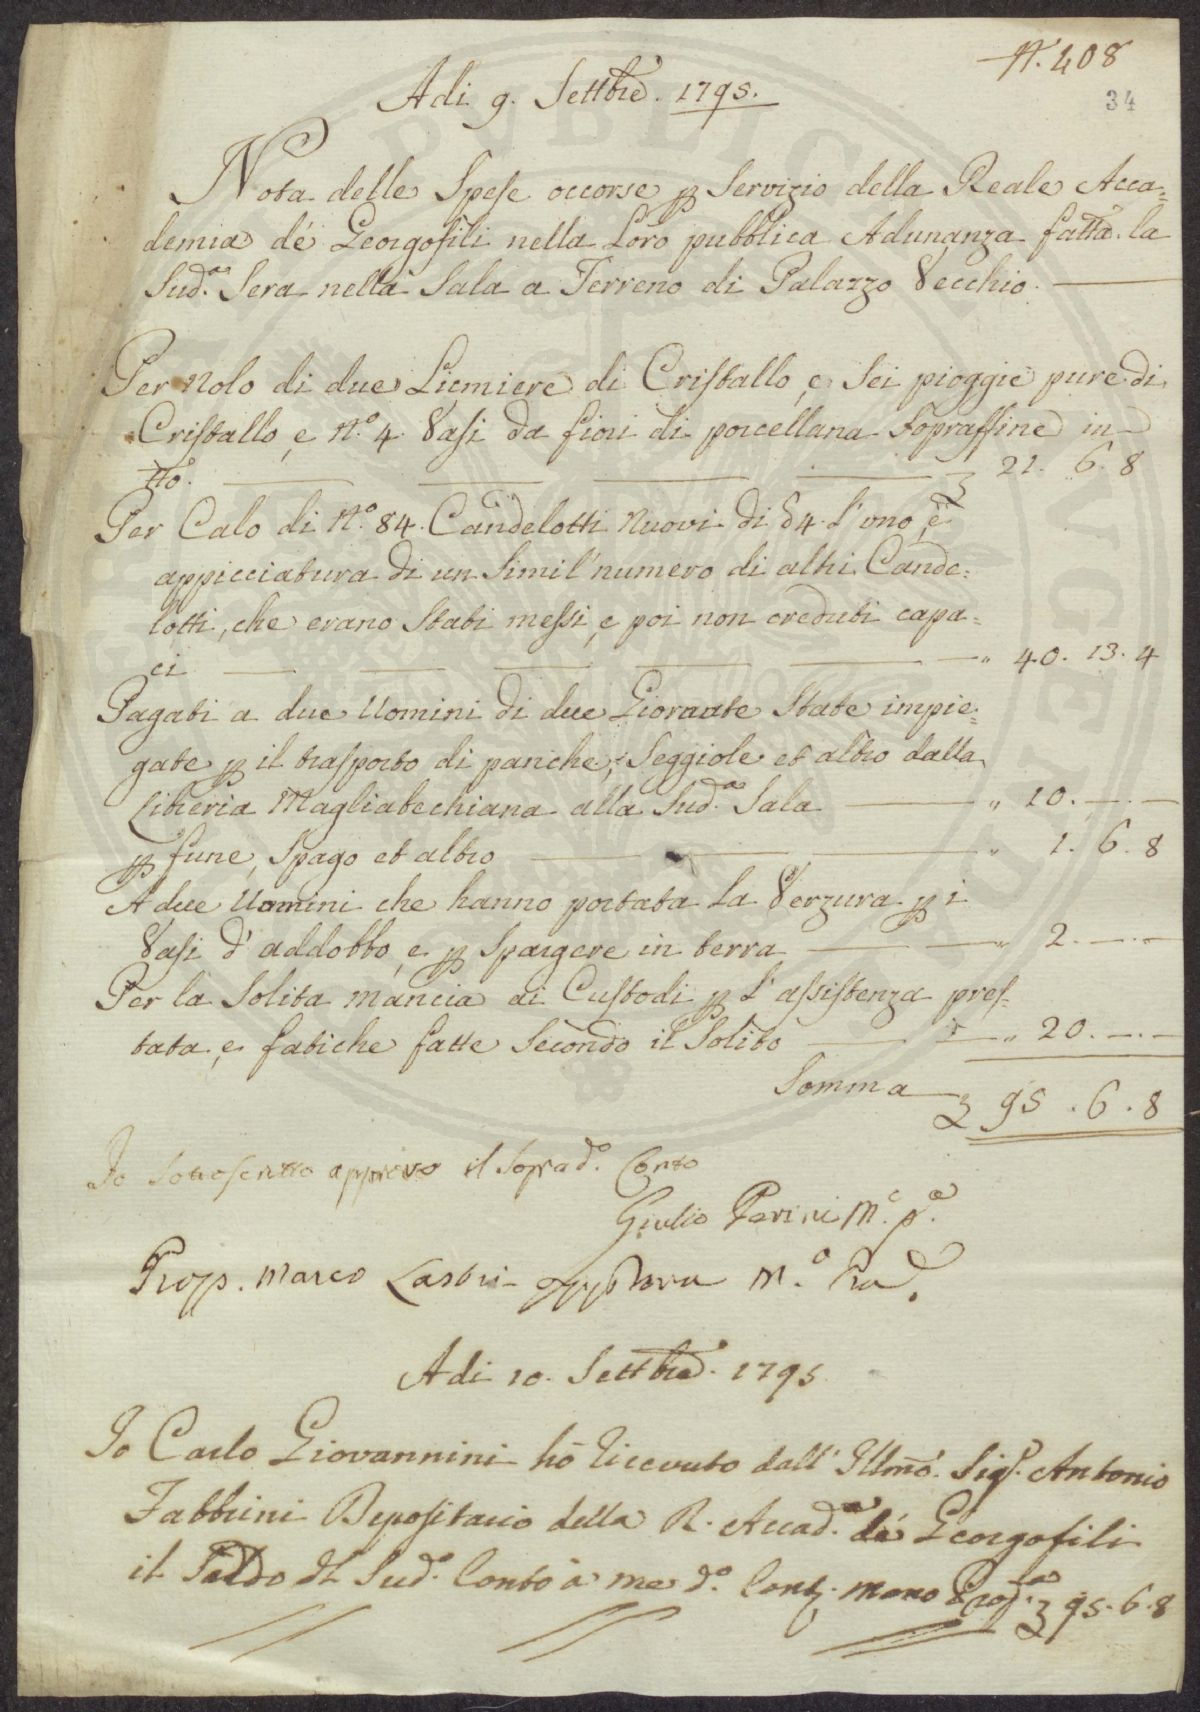 N. 408
34
Adi 9. Settbre. 1795.
Nota delle Spese occorse p Servizio della Reale Acca=
demia dé Georgofili nella Loro pubblica Adunanza fatta la
Sud.a Sera nella Sala a Terreno di Palazzo Vecchio.
Per Nolo di due Liemiere di Cristallo, e Sei pioggie pure di
Cristallo, e N.o 4. Vasi da fiori di porcellana Sopraffine in
tto. 21. 6. 8
Per Calo di N.o 84. Candelotti Nuovi di 84. L'uno, e
appicciatura di un Simil' numero di altri Cande=
lotti, che erano Stati messi, e poi non creduti capa=
ci " 40. 13. 4
Pagati a due Uomini di due Giornate State impie=
gate p il trasporto di panche, Seggiole et altro dalla
Libreria Magliabechiana alla Sud.a Sala " 10. — . —
p fune, Spago et altro " 1. 6. 8
A due Uomini che hanno portata La Verzura p i
Vasi d'addobbo, e p Spargere in terra " 2. — . —
Per la Solita mancia ai Custodi p L'assistenza pres=
tata, e fatiche fatte Secondo il Solito " 20. — . —
Somma 95. 6. 8
Io Sottoscritto approvo il Soprad.o Conto
Giulio Perini M.o p.a
Prop. Marco Lastri M.o Pa.
Adi 10. Settbre. 1795
Io Carlo Giovannini hò Ricevuto dall' Illmo. Sigr. Antonio
Fabbrini Depositario della R. Accad.a dé Georgofili
il Saldo del Sud.o Conto à me d.o Cont. mano Prop.a 95. 6. 8